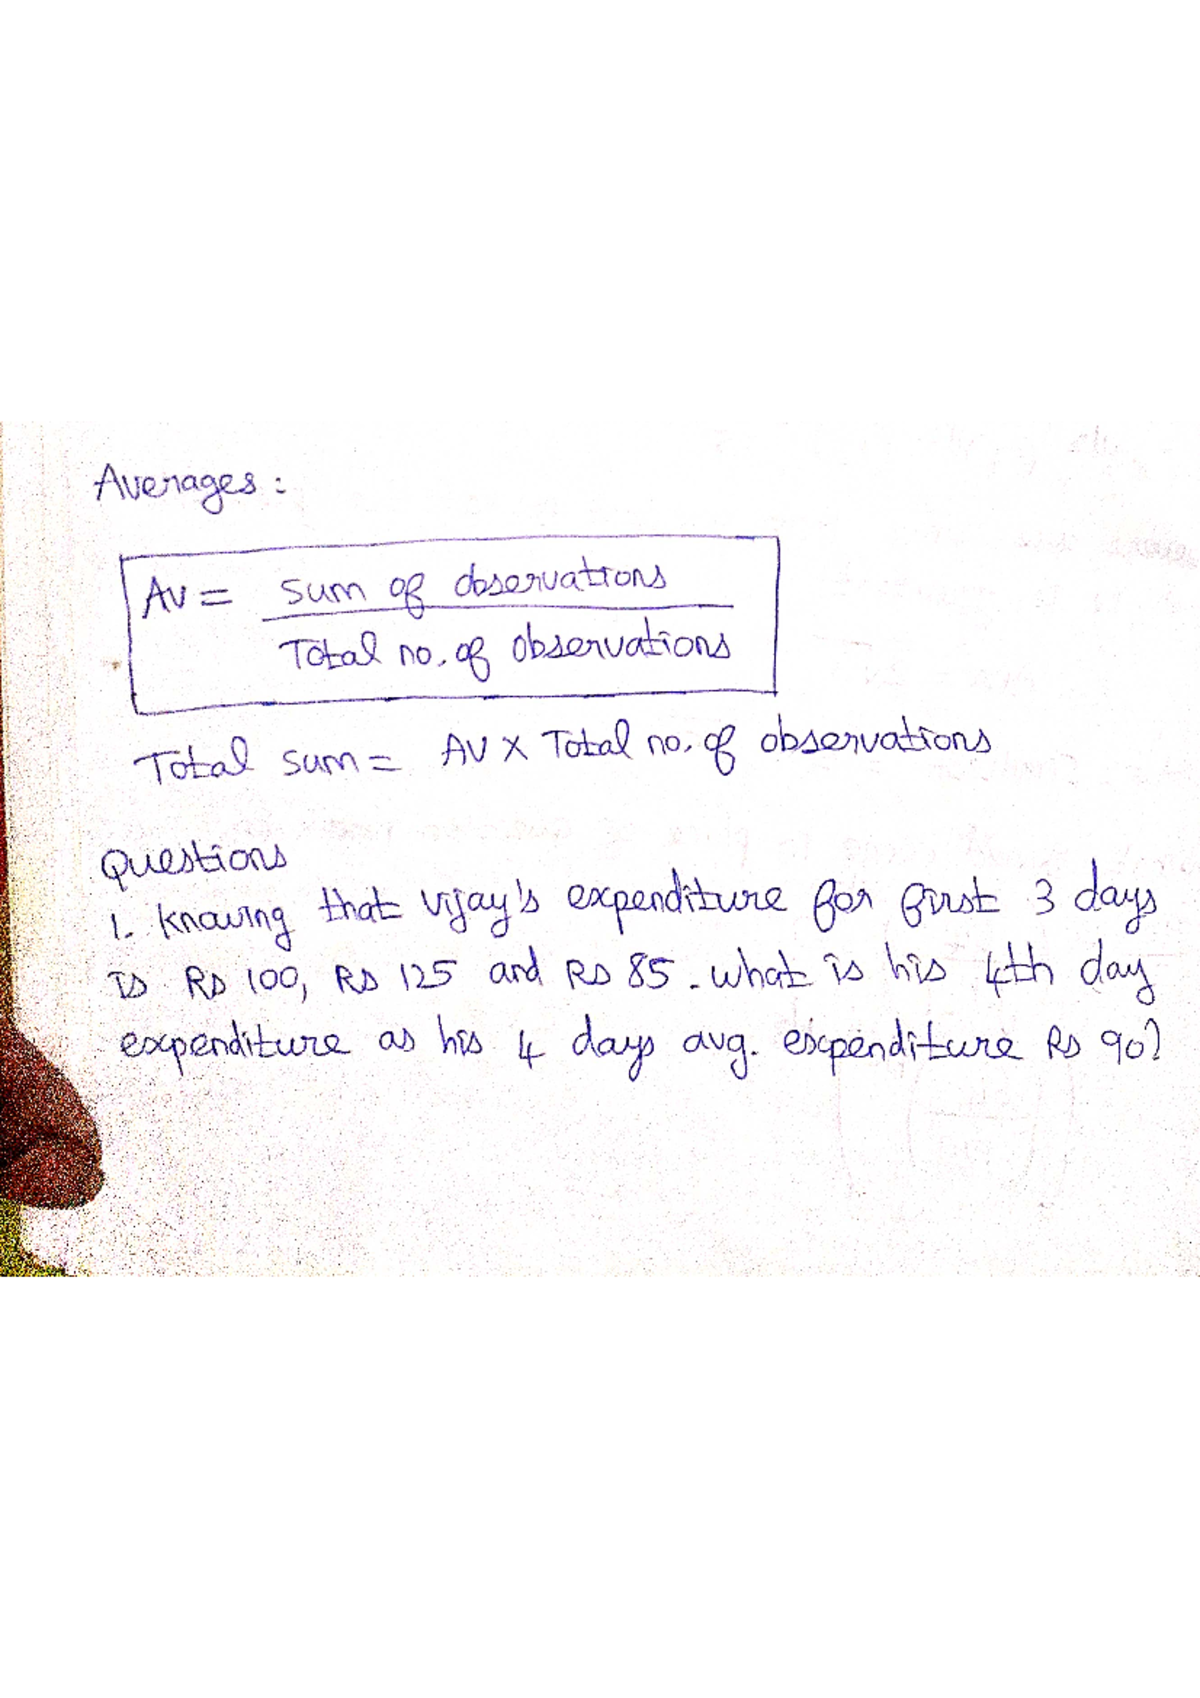 Averages :
AV = Sum of observations
Total no. of observations
Total sum = AV X Total no. of observations
Questions
1. Knowing that Vijay's expenditure for first 3 days
is Rs 100, Rs 125 and Rs 85. what is his 4th day
expenditure as his 4 days avg. expenditure Rs 90?